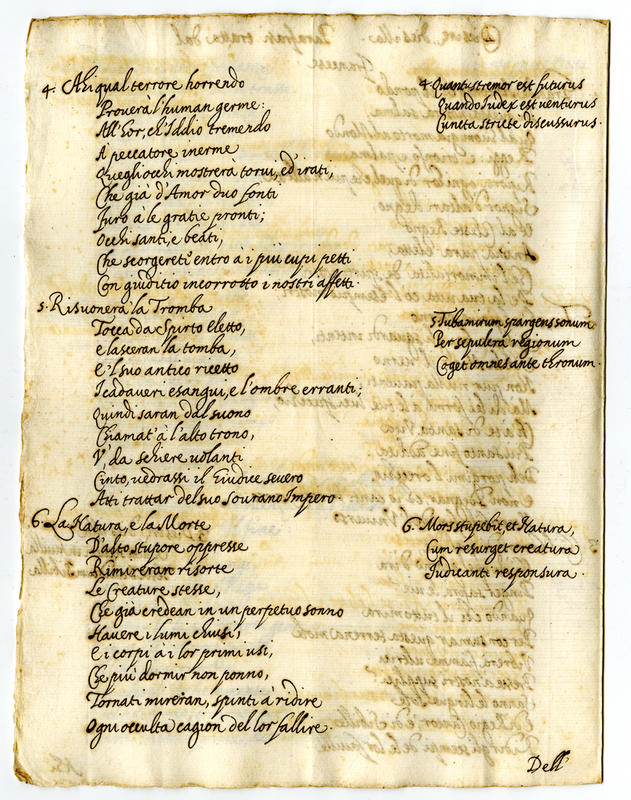 4. Ahi qual terrore horrendo
Proverà l'human germe:
All'hor, ch'Iddio tremendo
A' peccatore inerme
Quegli occhi mostrerà torui, ed irati,
Che già d'Amor duo fonti
Furo à le gratie pronti;
Occhi santi, e beati,
Che scorgereti entro à i più cupi petti
Con giuditio incorrotto i nostri affetti.
4 Quantus tremor est futurus
Quando Iudex est venturus
Cuncta stricte discussurus.
5. Risuonerà la Tromba
Tocca da Spirto eletto,
e lasceran la tomba,
E 'l suo antico ricetto
I cadaveri esangui, e l'ombre erranti;
Quindi saran dal suono
Chiamat' à l'alto trono,
V', da schiere volanti
Cinto, vedrassi il Giudice severo
Atti trattar del suo Sourano Impero.
5 Tuba mirum spargens sonum
Per sepulcra regionum
Coget omnes ante thronum.
6. La Natura, e la Morte
D'alto stupore oppresse
Rimireran risorte
Le Creature stesse,
Che già credean in un perpetuo sonno
Havere i lumi chiusi,
E i corpi à i lor primi usi,
Che più dormir non ponno,
Tornati mireran, spinti à ridire
Ogni occulta cagion del lor fallire.
6. Mors stupebit, et Natura,
Cum resurget creatura
Iudicanti responsura.
Dell'